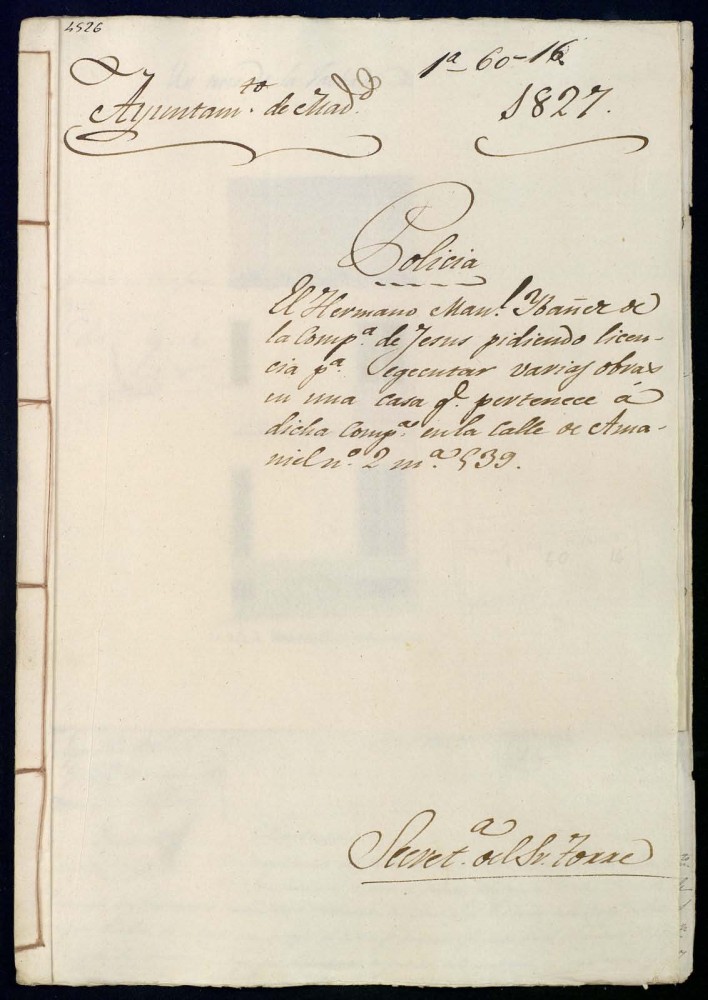 4526
1ª-60-16
Ayuntam.to de Mad.d
1827.
Policia
El Hermano Man.l Ybañez de
la Comp.ª de Jesus pidiendo licen-
cia p.ª egecutar varias obras
en una casa q.e pertenece á
dicha Comp.ª en la Calle de Ama-
niel n.º 2 m.ª 539.
Secret.ª del Sr. Torre